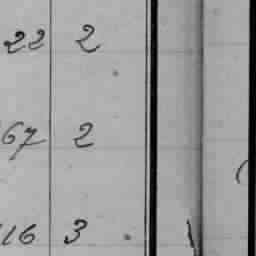 22 2
67 2
16 3